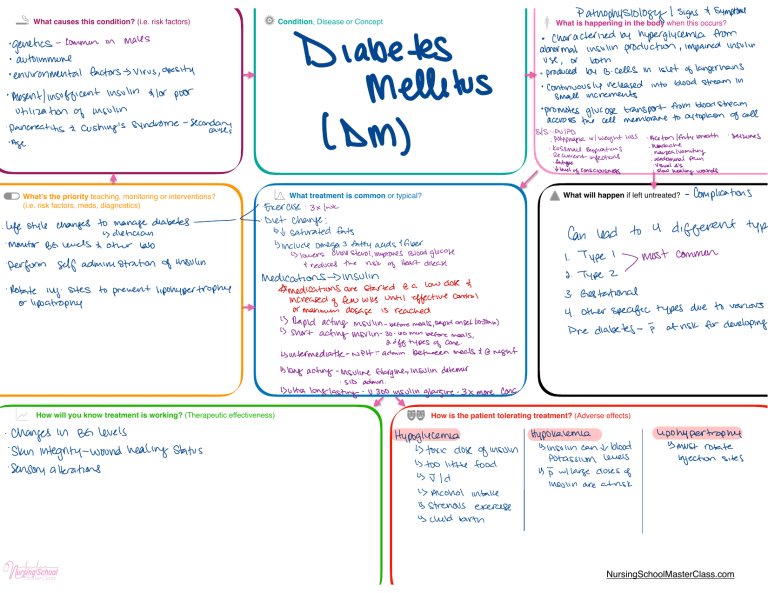 What causes this condition? (i.e. risk factors)
·genetics - common in males
·autoimmune
·environmental factors → virus, obesity
·Absent/insufficient insulin &/or poor
utilization of insulin
pancreatitis & Cushing's syndrome - secondary
causes
·Age
Condition, Disease or Concept
Diabetes
Mellitus
(DM)
Pathophysiology / Signs & Symptoms
What is happening in the body when this occurs?
· Characterized by hyperglycemia from
abnormal insulin production, impaired insulin
use, or both
· produced by B-cells in islet of langerhans
· Continuously released into blood stream in
small increments
·promotes glucose transport from blood stream
accross the cell membrane to cytoplasm of cell
S/S · PU/PD
· Polyphagia w/ weight loss
· Kussmaul respirations
· Recurrent infections
· fatigue
· ↓ level of consciousness
· Acetone/fruity breath
· headache
· nausea/vomiting
· abdominal pain
· visual Δ's
· slow healing wounds
· seizures
What's the priority teaching, monitoring or interventions?
(i.e. risk factors, meds, diagnostics)
· Life style changes to manage diabetes
↳ dietician
· Monitor BG levels & other labs
perform self administration of insulin
· Rotate inj. sites to prevent lipohypertrophy
or lipoatrophy
What treatment is common or typical?
Exercise: 3x/wk
Diet Change:
↳↓ saturated fats
↳include omega 3 fatty acids & fiber
↳ lowers cholesterol, improves blood glucose
& reduces the risk of heart disease
Medications → insulin
medications are started @ a low dose &
increased q few wks until effective control
or maximum dosage is reached
↳ Rapid acting insulin - before meals, rapid onset
↳ short acting insulin - 30-60 min before meals,
2 diff types of conc.
↳intermediate - NPH = admin between meals & @ night
↳long acting - insuline glargine, insulin detemir
· SID admin.
↳ultra long lasting - U 300 insulin glargine - 3x more conc
What will happen if left untreated? - Complications
Can lead to 4 different typ
1. Type 1
2. Type 2
most common
3. Gestational
4. other specific types due to various
Pre diabetes - p̄ at risk for developing
How will you know treatment is working? (Therapeutic effectiveness)
· Changes in BG levels
· Skin integrity - wound healing status
· Sensory alterations
How is the patient tolerating treatment? (Adverse effects)
Hypoglycemia
↳ toxic dose of insulin
↳ too little food
↳ V/d
↳ Alcohol intake
↳ strenous exercise
↳ child birth
Hypokalemia
↳ insulin can ↓ blood
potassium levels
↳ p̄ w/ large doses of
insulin are at risk
Lipohypertrophy
↳ must rotate
injection sites
NursingSchool
NursingSchoolMasterClass.com